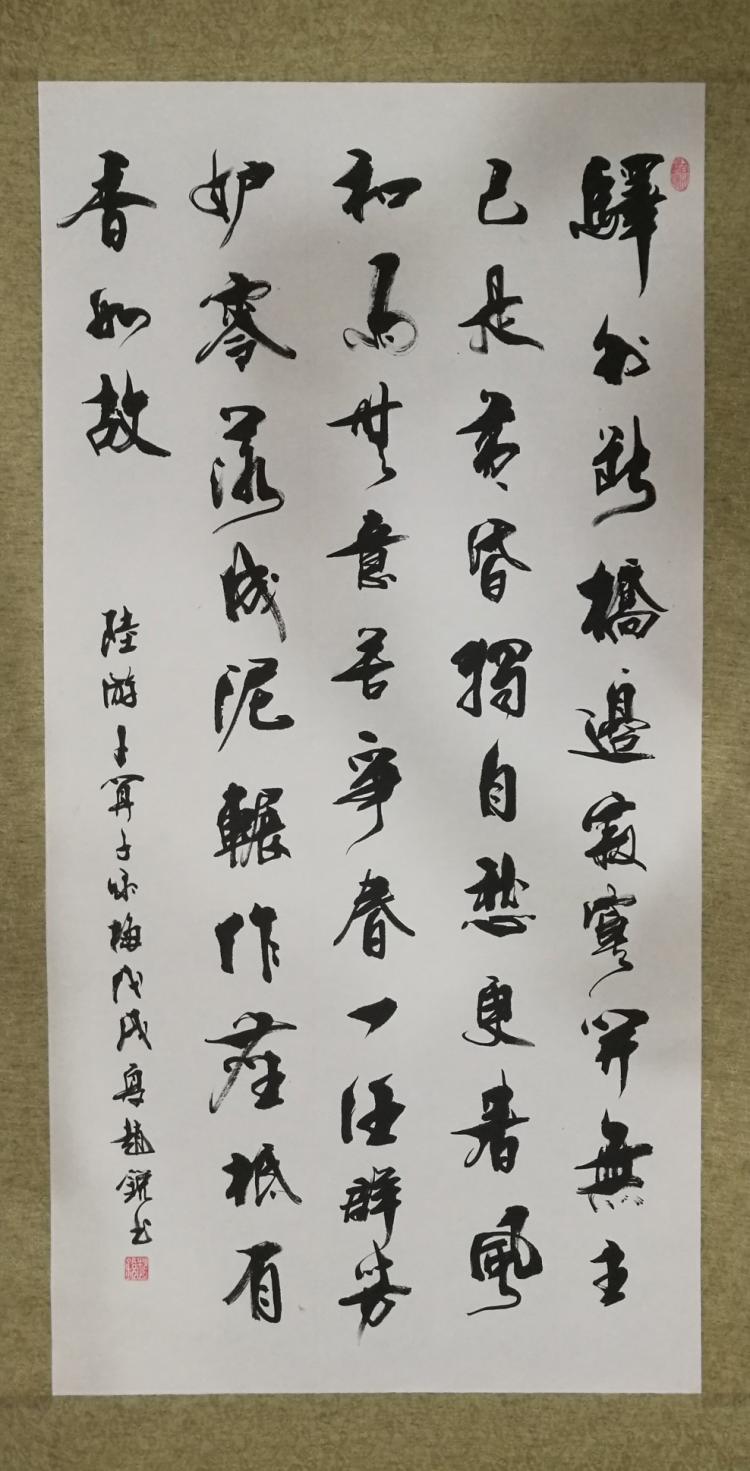 驛外斷橋邊寂寞開無主
已是黃昏獨自愁更著風
和雨無意苦爭春一任群芳
妒零落成泥輾作塵祗有
香如故
陸游卜算子咏梅戊戌夏趙銳书